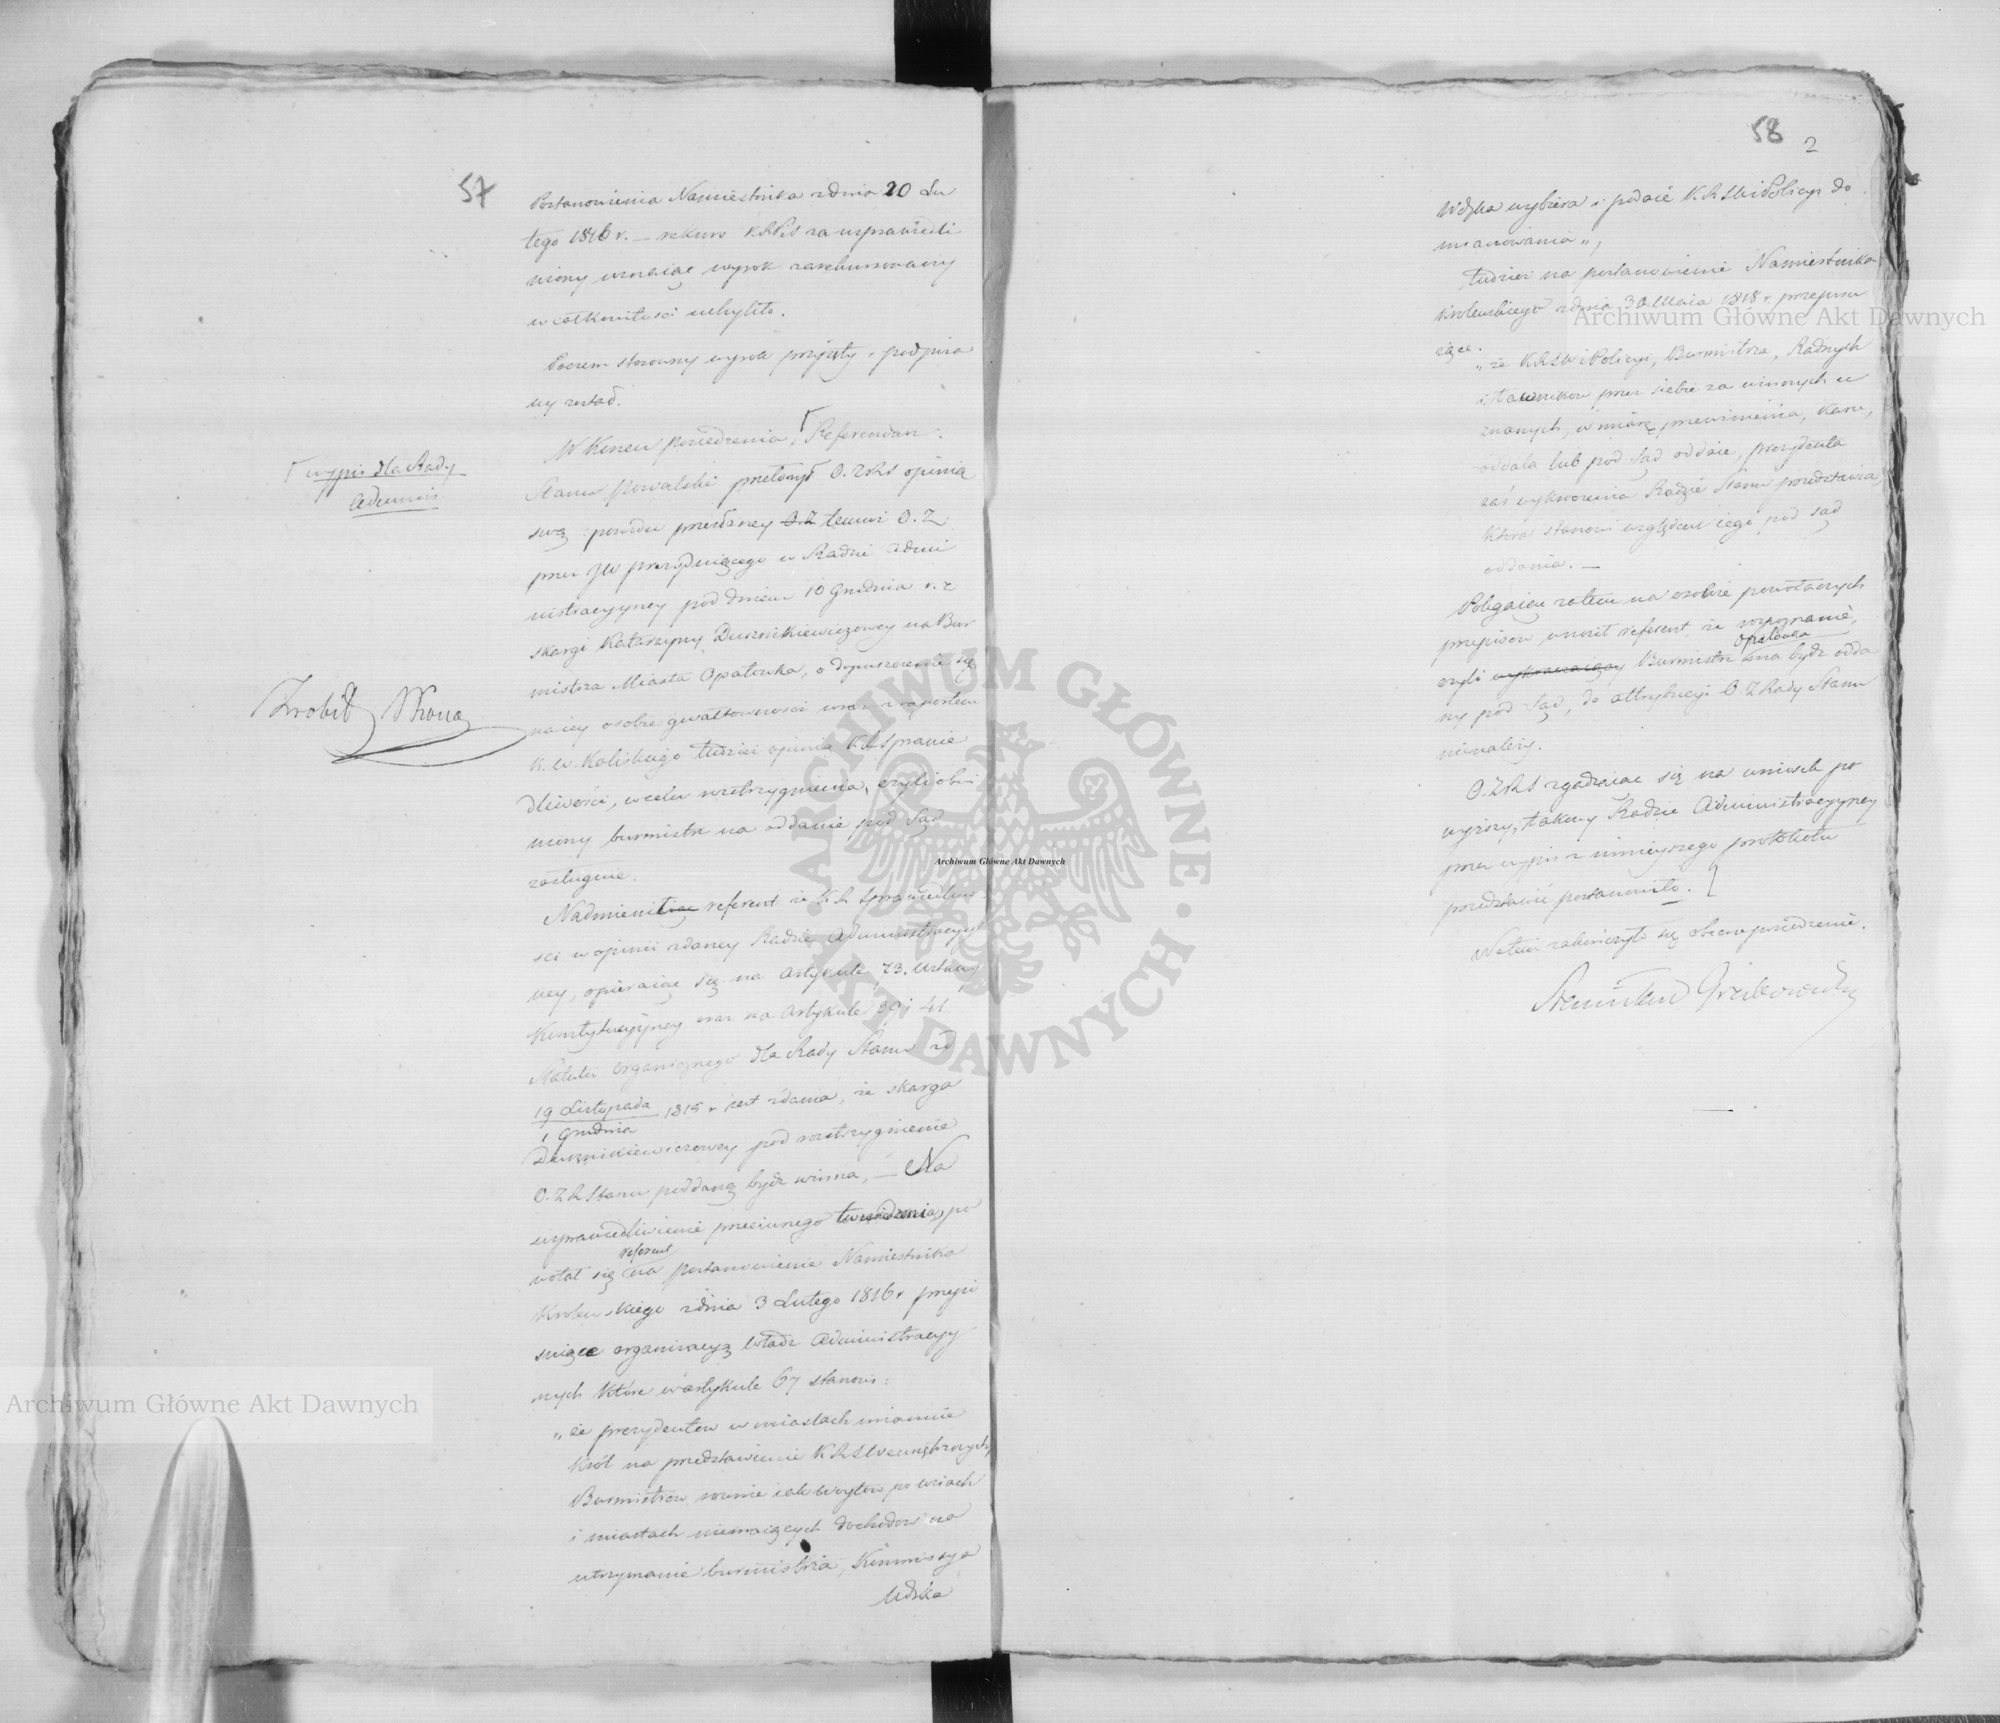 57
Postanowienia Namiestnika z dnia 20 Lu
tego 1816 r. — rekurs KRPiS za usprawiedli
wiony uznając wyrok zarekursowany
w całkowitości uchylito.
Poczem stosowny wyrok przyjęty i podpisa
ny został.
W Koncu posiedzenia, Referendarz
Stanu Kowalski przełożył O.ZRS opinią
swą z powodu przesłaney O.Z temuż O.Z
przez JW prezyduiącego w Radzie Admi
nistracyyney pod dniem 10 Grudnia r.z
skargi Katarzyny Duszńkiewiczowey na Bur
mistrza Miasta Opatowka, o dopuszczenie się
na iey osobie gwałtowności wraz z raportem
K. W. Kaliskiego tudzież opinią K.R Sprawie
dliwości, w celu rozstrzygnienia, czyli obwi
niony burmistrz na oddanie pod Sąd
zasługuie.
Nadmienił referent że K.R Sprawiedliwo
ści w opinii zdaney Radzie Administracyy
ney, opieraiąc się na Artykule 73. Ustawy
Konstytucyyney oraz na Artykule 39 i 41
Statutu organicznego dla Rady Stanu z d
19 Listopada
1 Grudnia
1815 r iest zdania, że skarga
Duszńikiewiczowey pod rozstrzygnienie
O.Z R Stanu poddaną bydź winna, — Na
usprawiedliwienie przeciwnego twierdzenia, po
referent
wołał się na postanowienie Namiestnika
Krolewskiego z dnia 3 Lutego 1816 r przepi
suiące organizacyą Władz Administracyy
nych które w artykule 67 stanowi:
„że prezydentow w miastach mianuie
Król na przedstawienie KRSWewnętrznych
Burmistrzow rownie iak Woytow po wsiach
i miastach niemaiących dochodow na
utrzymanie burmistrza, Kommissya
Wdzka
wypis dla Rady
Adminis
Zrobił
58
2
Wdzka wybiera i podaie K.R.SWiPolicyi do
mianowania„,
tudzież na postanowienie Namiestnika
Krolewskiego z dnia 30 Maia 1818 r. przepisu
iące.
„że KRSWiPolicyi, Burmistrza, Radnych
i Ławnikow przez siebie za winnych u
znanych, w miarę przewinienia, karze,
oddala lub pod Sąd oddaie, prezydenta
zaś wykroczenia Radzie Stanu przedstawia
Która stanowi względem iego pod sąd
oddania. —
Polegaiąc zatem na osobie powołanych
przepisow wnosił referent że rozpoznanie,
Opatowka
czyli Burmistrz ma bydz odda
ny pod Sąd, do attrybucyi O.Z Rady Stanu
nienależy.
O.ZRS zgadzaiąc się na wniosek po
wyższy, takowy Radzie Administracyyney
przez wypis z ninieyszego protokułu
przedstawić postanowiło.
Natem zakończyło się obecne posiedzenie.
Stanisław Grabowski
Archiwum Główne Akt Dawnych
Archiwum Główne Akt Dawnych
Archiwum Główne Akt Dawnych
ARCHIWUM GŁÓWNE · AKT DAWNYCH ·